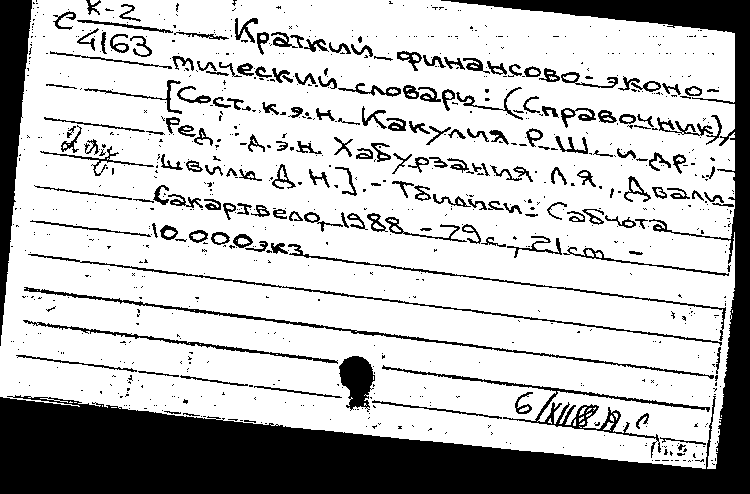 К-2
С 4163
Краткий финансово-эконо-
мический словарь: (Справочник)/
[Сост. к.э.н. Какулия Р.Ш. и др.;
Ред.: д.э.н. Хабурзания Л.Я., Двали-
швили Д.Н.]. - Тбилиси: Сабчота
Сакартвело, 1988 - 79с.; 21см -
10.000экз.
2 эц.
6/XII88.